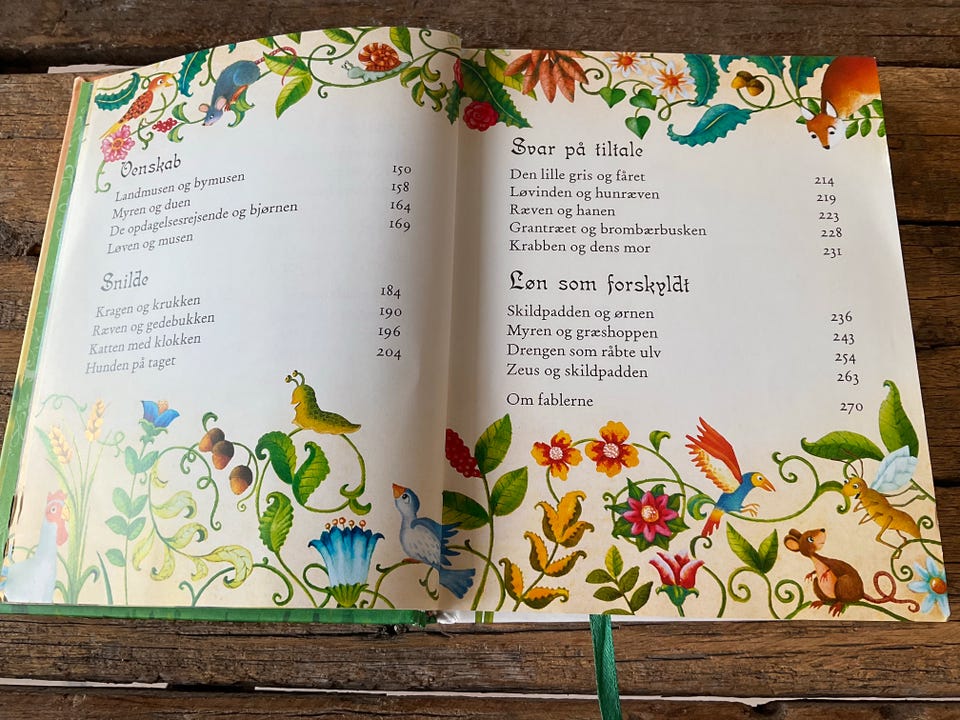 Venskab
Landmusen og bymusen 150
Myren og duen 158
De opdagelsesrejsende og bjørnen 164
Løven og musen 169
Snilde
Kragen og krukken 184
Ræven og gedebukken 190
Katten med klokken 196
Hunden på taget 204
Svar på tiltale
Den lille gris og fåret 214
Løvinden og hunræven 219
Ræven og hanen 223
Grantræet og brombærbusken 228
Krabben og dens mor 231
Løn som forskyldt
Skildpadden og ørnen 236
Myren og græshoppen 243
Drengen som råbte ulv 254
Zeus og skildpadden 263
Om fablerne 270